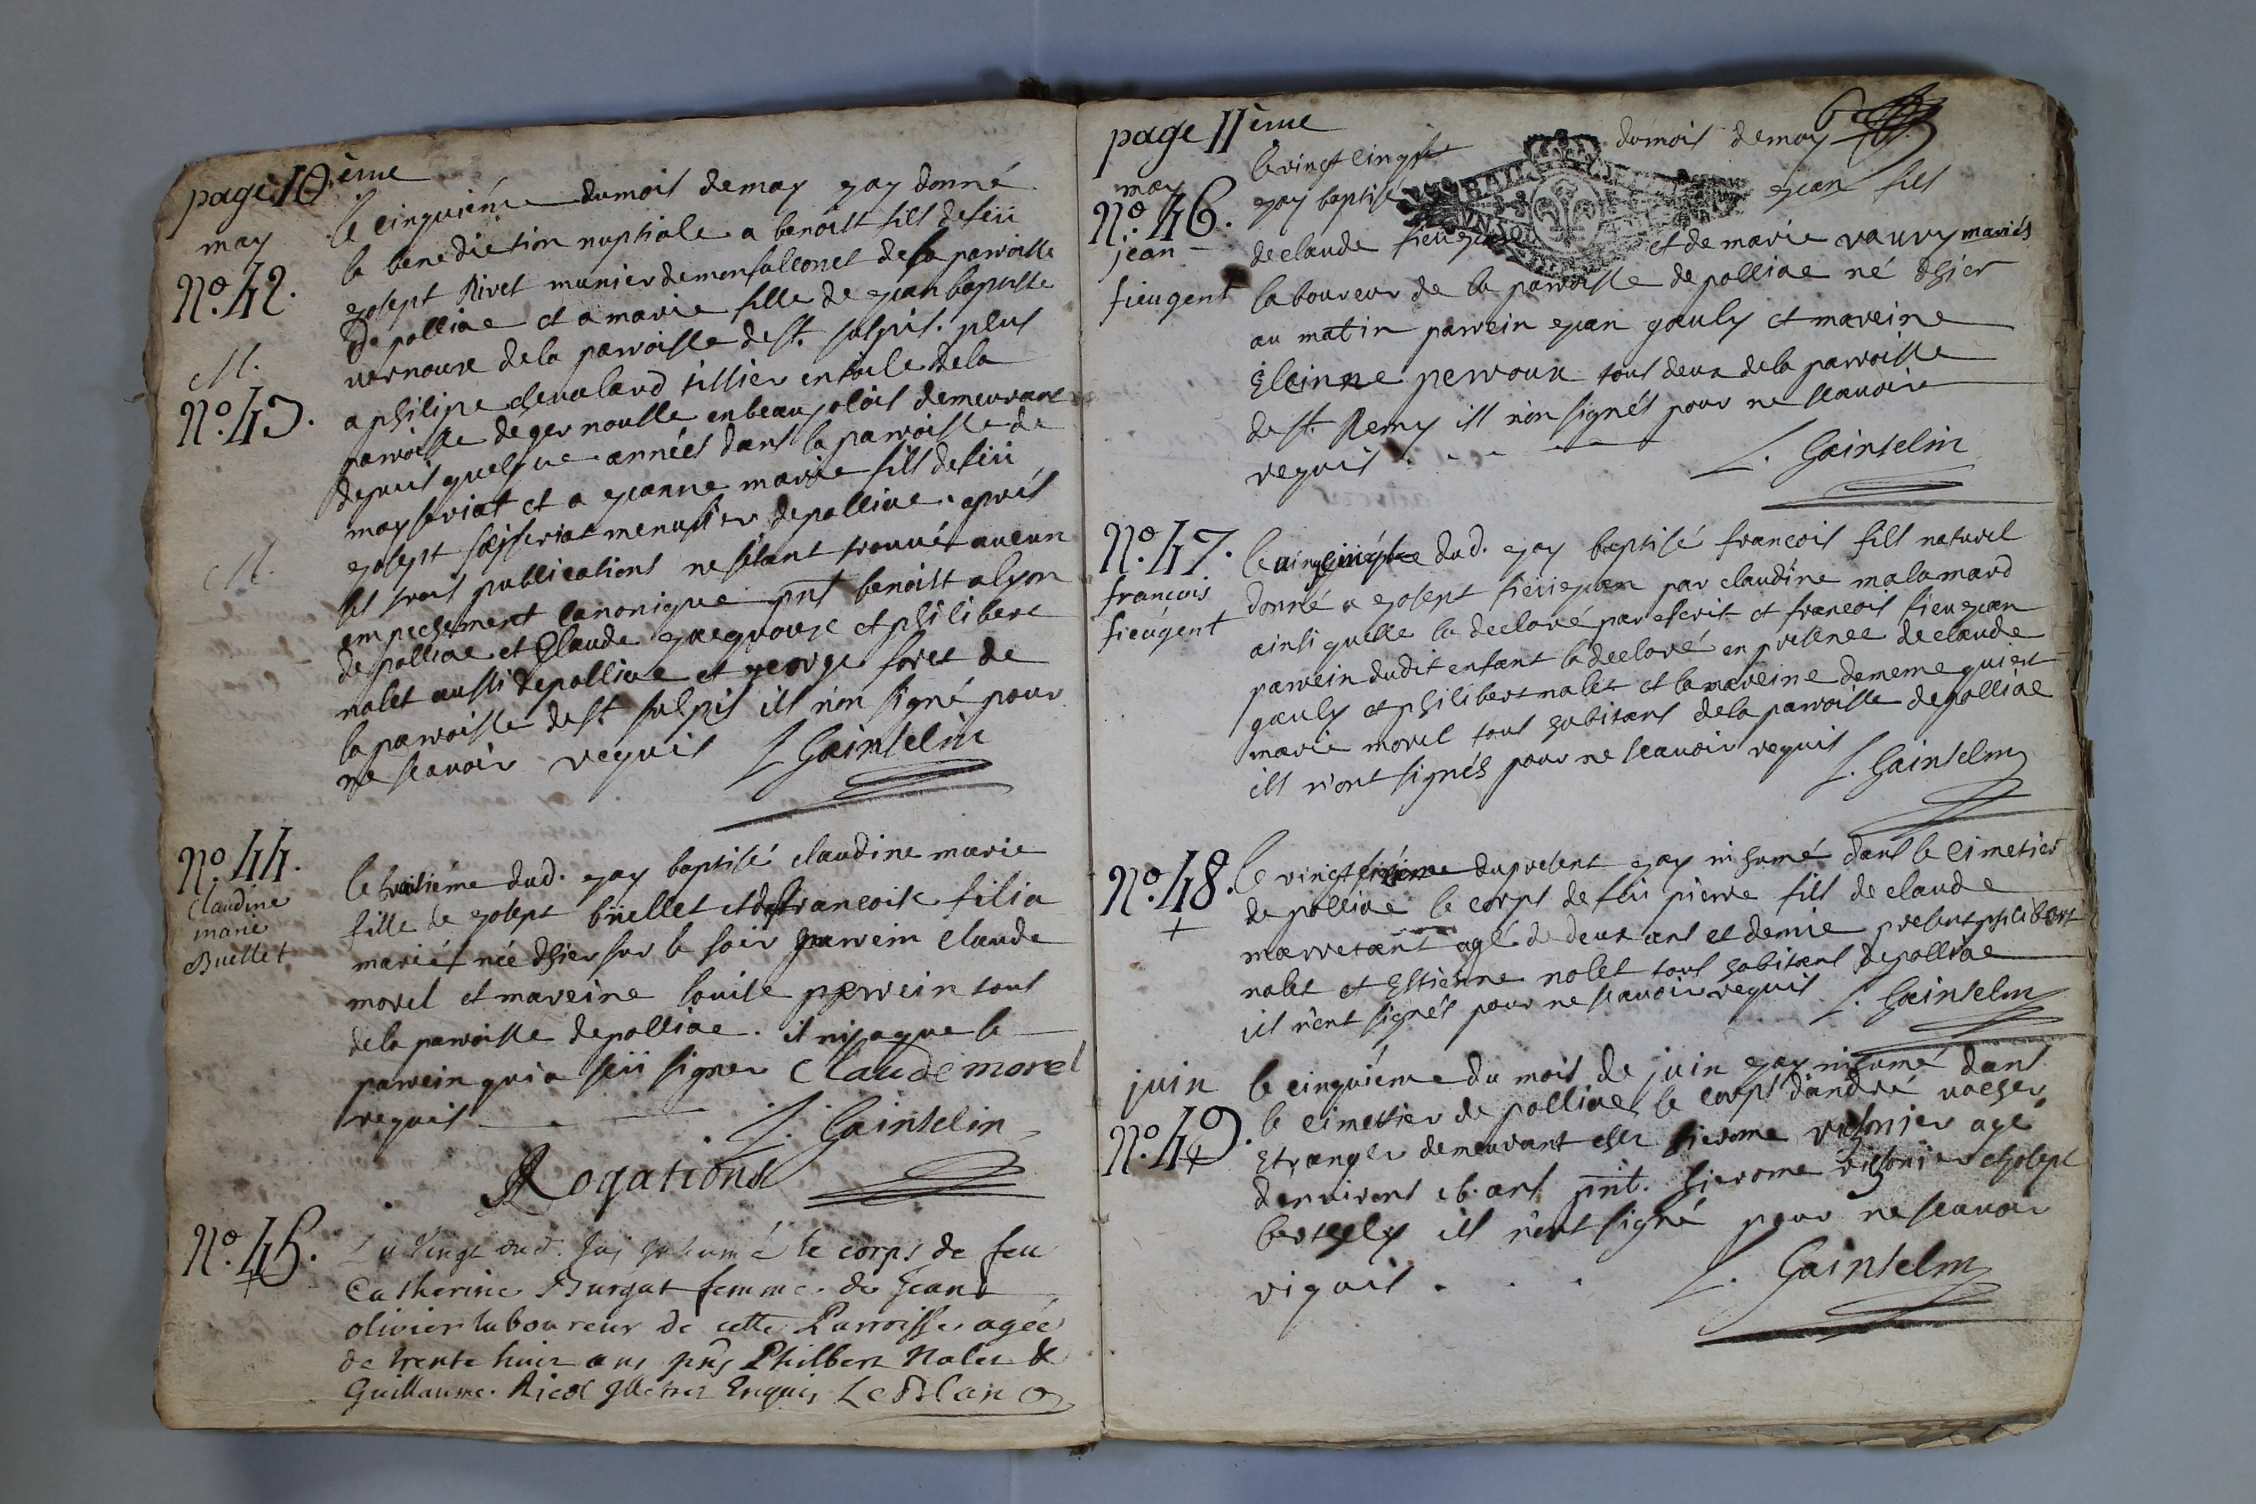 page 10ème
may
le cinquiéme du mois de may ejay donné
la benediction nuptiale a benoist fils de feu
No. 42.
ejosept Rivet munier de monfalconet de la parroisse
de polliac et a marie fille de ejean baptiste
vernoux de la parroisse de st. sulpis. plus
M.
No. 43.
a philipe chevalard tissier en toile de la
parroisse de ger noulle en beaujolois demeurant
depuis quelque années dans la parroisse de
may seriat et a ejeanne marie fill de feu
ejosept menusier de polliac. aprés
M.
les trois publications ne sétant trouvé aucun
empechement canonique pnt benoist alyon
de polliac et Claude ejacquoux et philibert
nalet aussi de polliac et george foret de
la parroisse de st sulpis ils n'on signé pour
ne scavoir requis L Gainselin
No. 44.
Claudine
marie
Buellet
le traisiéme dud. ejay baptisé claudine marie
fille de ejosept büellet et de francoise filia
mariés née dhier sur le soir parrein claude
morel et mareine louise perrein tous
de la parroisse de polliac. il nija que le
parrein qui a seü signer Claude morel
requis L. Gainselin
Rogations
No. 45.
+
Le Vingt dud. Jay Inhumé le corps de feu
Catherine Burgat femme de Jean
olivier laboureur de cette Parroisse agée
de trente huit ans pns Philbert Nalet &
Guillaume Ricol Illetrez Enquis LeBlanc
page 11ème
6
may
le vingt cinq du mois de may
No. 46.
ejay baptisé ejean fils
jean
fieugent
de claude fieuejean et de marie vauvry mariés
laboureur de la parroisse de polliac né dhier
au matin parrein ejean gauly et mareine
Eteinne perroux tous deux de la parroisse
de st. Remy ill n'on signés pour ne scavoir
requis . . . L. Gainselin
No. 47.
francois
fieugent
le dud. ejay baptisé francois fils naturel
donné a ejosept fieuejean par claudine malamard
ainsi quelle la declaré par escrit et francois fieuejean
parrein dudit enfant la declaré en presence de claude
gauly et philibert nalet et la mareine de meme qui est
marie morel tous habitans de la parroisse de polliac
ils n'ont signés pour ne scavoir requis L. Gainselin
No. 48.
+
le vingt du present ejay inhumé dans le cimetier
de polliac le corps de feü pierre fils de claude
marretant agé de deux ans et demie present philibert
nalet et Estienne nolet tous habitans de polliac
ils n'ent signés pour ne scavoir requis L. Gainselin
juin
No. 49.
+
le cinquiéme du mois de juin ejay inhumé dans
le cimettier de polliac le corps d'andré vacher
Etranger demeurant ches hierome agé
d'environs ans pnt. hierome et ejosept
berthely ils n'ent signé pour ne scavoir
riquis . . . L. Gainselin